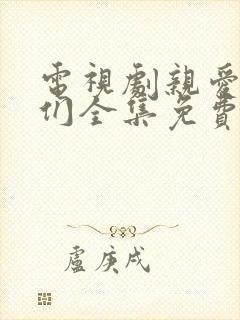 電視劇親愛
们全集免費
盧庚戌